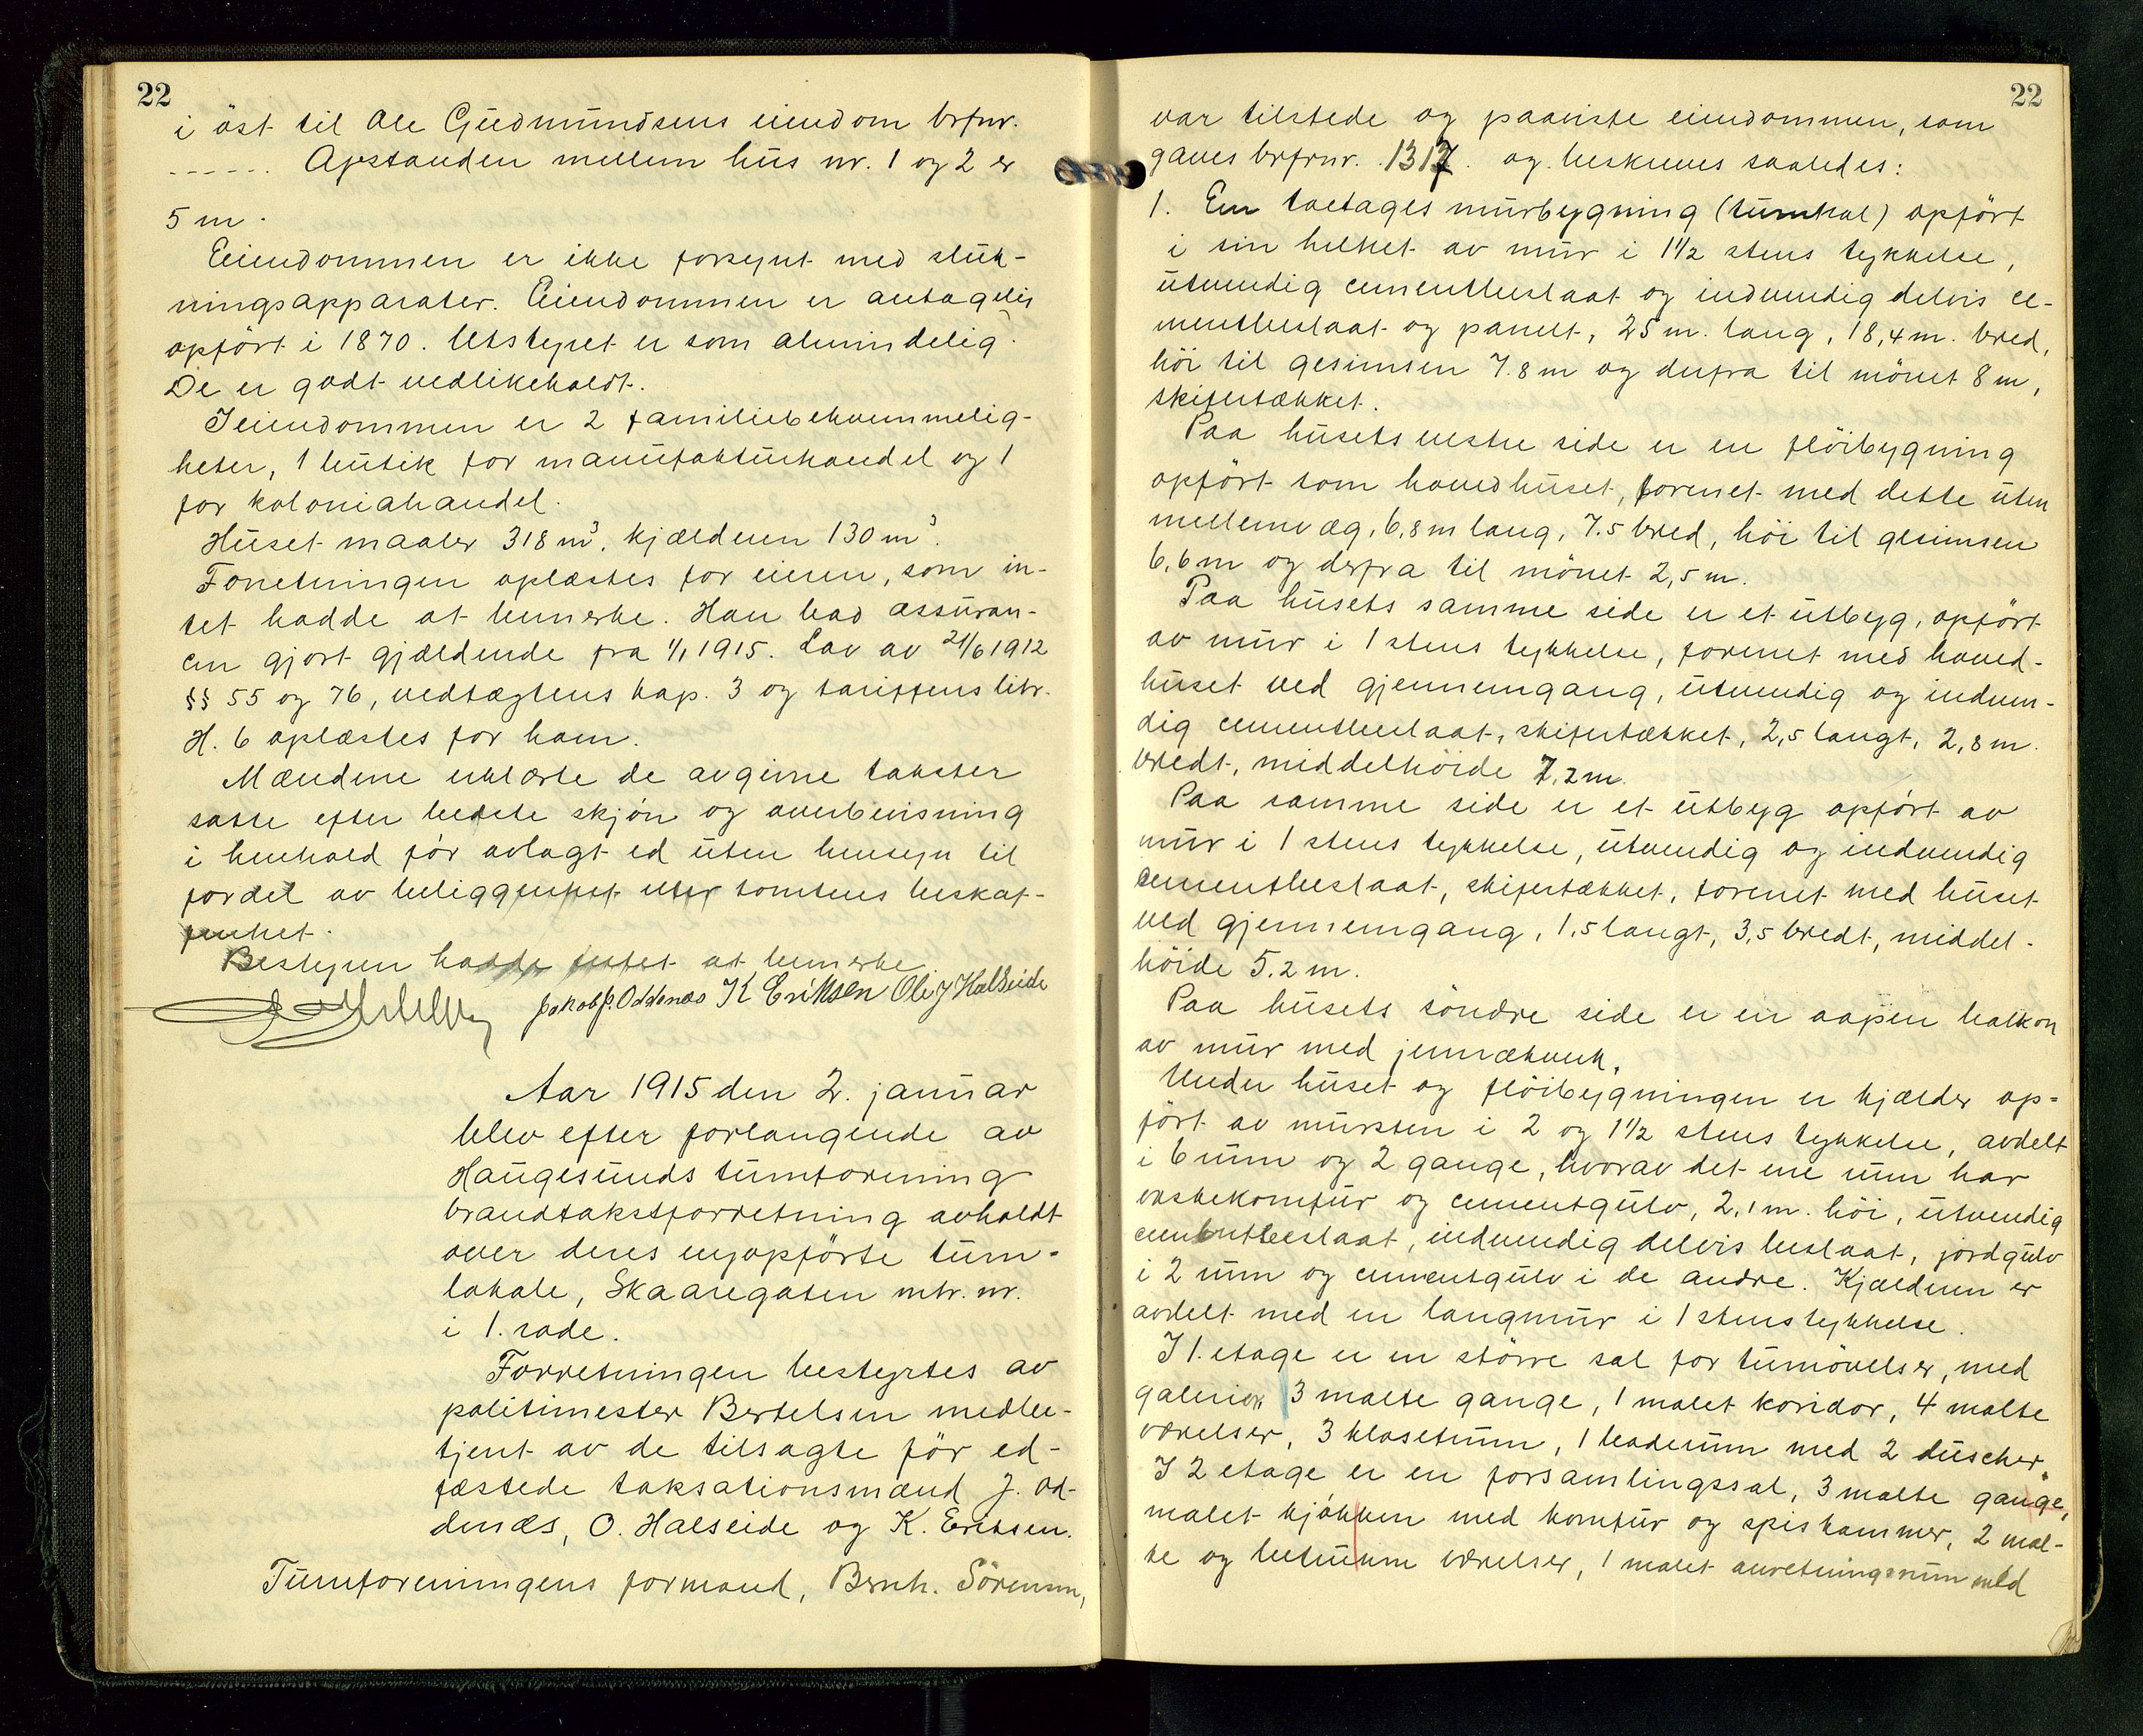 22
i öst til Ole Gudmundsens eiendom brfnr.
------. Avstanden mellem hus nr. 1 og 2 er
5 m.
Eiendommen er ikke forsynt med sluk-
ningsapparater. Eiendommen er antagelig
opført i 1870. Utstyret er som almindelig.
De er godt vedlikeholdt.
I eiendommen er 2 familiebekvemmelig-
heter, 1 butik for manufakturhandel og 1
for kolonialhandel.
Huset maaler 318 m³, kjælderen 130 m³.
Forretningen oplæstes for eieren, som in-
tet hadde at bemerke. Han bad assuran-
cen gjort gjældende fra 1/1 1915. Lov av 21/6 1912
§§ 55 og 76, vedtægtens kap. 3 og tariffens litr.
H. 6 oplæstes for ham.
Mændene erklærte de avgivne takster
satte efter bedste skjön og overbevisning
i henhold för avlagt ed uten hensyn til
fordel av beliggenhet eller tomtens beskaf-
fenhet.
Bestyren hadde intet at bemerke
Jakob J. Oddenæs K Eriksen Ole J Halseide
Aar 1915 den 2. januar
blev efter forlangende av
Haugesunds turnforening
brandtakstforretning avholdt
over deres nyopförte turn-
lokale, Skaaregaten mtr. nr.
i 1. rode.
Forretningen bestyrtes av
politimester Bertelsen medbe-
tjent av de tilsagte för ed-
fæstede taksationsmænd J. Od-
denæs, O. Halseide og K. Eriksen.
Turnforeningens formand, Bernh. Sörensen,
22
var tilstede og paaviste eiendommen, som
gaves brfrnr. 1317. og beskrives saaledes:
1. En toetages murbygning (turnhal) opfört
i sin helhet av mur i 1½ stens tykkelse,
utvendig cementbeslaat og indvendig delvis ce-
mentbeslaat og panelt, 25 m. lang, 18,4 m. bred,
höi til gesimsen 7.8 m og derfra til mönet 8 m,
skifertækket.
Paa husets vestre side er en flöibygning
opfört som hovedhuset, forenet med dette uten
mellemvæg, 6,8 m lang, 7.5 bred, höi til gesimsen
6,6 m og derfra til mönet 2,5 m.
Paa husets samme side er et utbyg, opfört
av mur i 1 stens tykkelse, forenet med hoved-
huset ved gjennemgang, utvendig og indven-
dig cementbeslaat, skifertækket, 2,5 langt, 2,8 m.
bredt, middelhöide 7.2 m.
Paa samme side er et utbyg opfört av
mur i 1 stens tykkelse, utvendig og indvendig
cementbeslaat, skifertækket, forenet med huset
ved gjennemgang, 1,5 langt, 3,5 bredt, middel-
höide 5.2 m.
Paa husets söndre side er en aapen balkon
av mur med jernrækverk.
Under huset og flöibygningen er kjælder op-
fört av mursten i 2 og 1½ stens tykkelse, avdelt
i 6 rum og 2 gange, hvorav det ene rum har
vaskekomfur og cementgulv, 2,1 m. höi, utvendig
cementbeslaat, indvendig delvis beslaat, jordgulv
i 2 rum og cementgulv i de andre. Kjælderen er
avdelt med en langmur i 1 stens tykkelse.
I 1. etage er en större sal for turnövelser, med
galerier 3 malte gange, 1 malet koridor, 4 malte
værelser, 3 klosetrum, 1 baderum med 2 duscher.
I 2 etage er en forsamlingssal, 3 malte gange,
malet kjökken med komfur og spiskammer, 2 mal-
te og betrukne værelser, 1 malet anretningsrum med